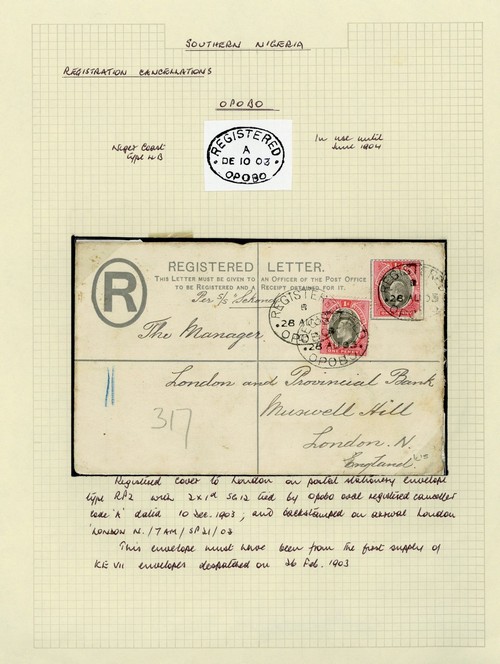 SOUTHERN NIGERIA
REGISTRATION CANCELLATIONS
OPOBO
Niger Coast
Type 4B
REGISTERED
A
DE 10 03
OPOBO
In use until
June 1904
REGISTERED LETTER.
THIS LETTER MUST BE GIVEN TO AN OFFICER OF THE POST OFFICE
TO BE REGISTERED AND A RECEIPT OBTAINED FOR IT.
R
Per S/S
REGISTERED
28 AU 03
OPOBO
28 AU 03
OPOBO
ONE PENNY
REGISTERED
28 AU 03
The Manager,
London and Provincial Bank
Muswell Hill
London. N.
England.
317
Registered cover to London on postal stationery envelope
type RP2 with 2x1d SG12 tied by Opobo oval registered canceller
code 'A' dated 10 Dec. 1903; and backstamped on arrival London
'LONDON N./7AM/SP21/03
This envelope must have been from the first supply of
KE VII envelopes despatched on 26 Feb. 1903